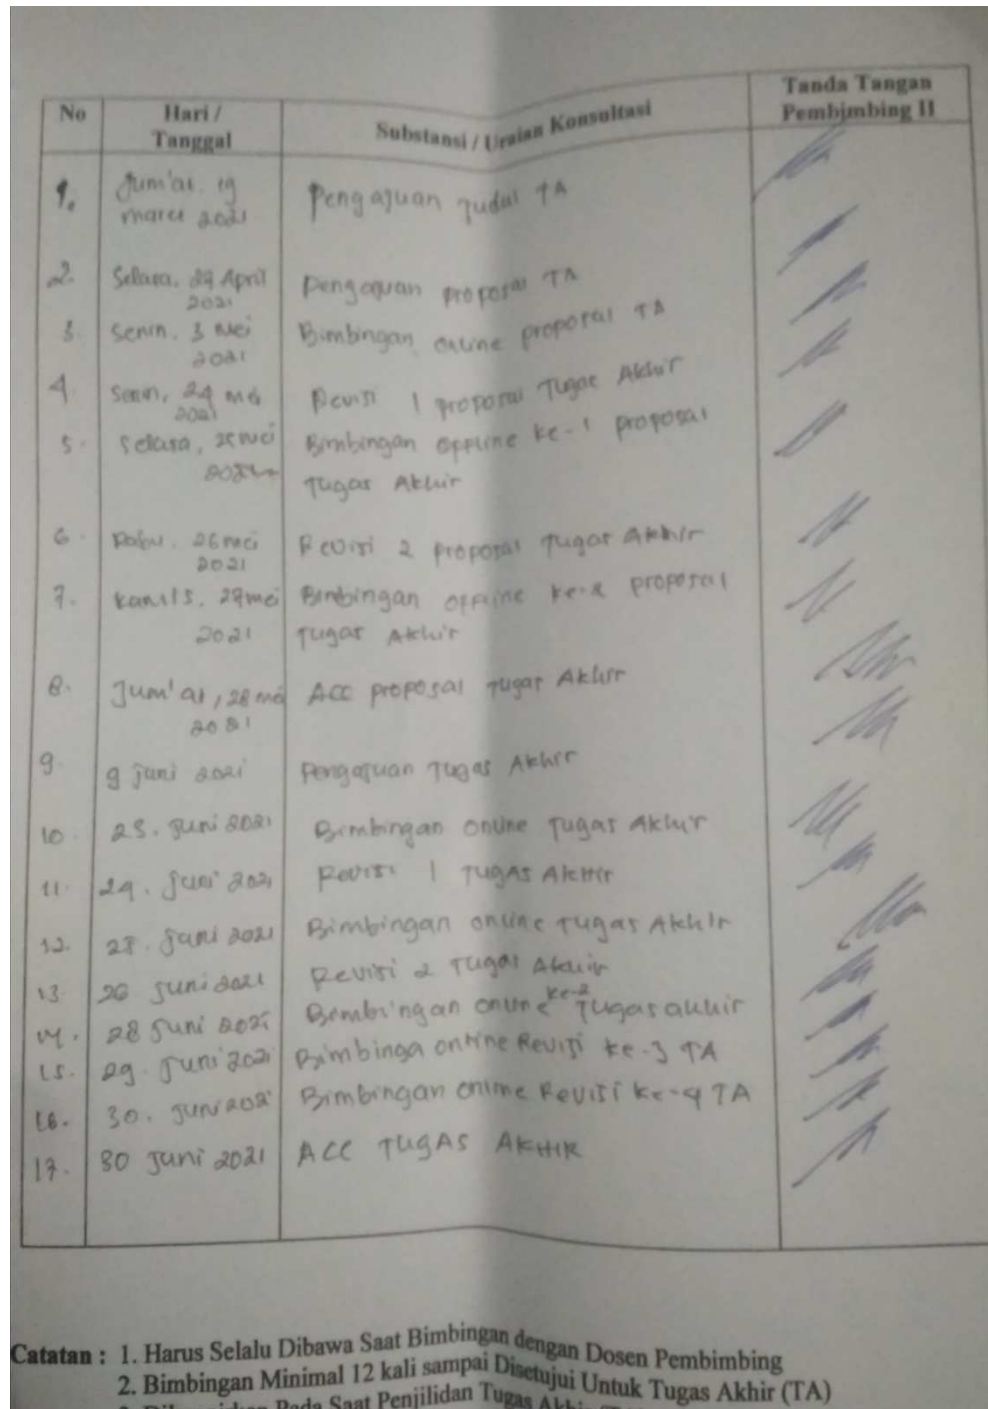 No Hari / Tanggal Substansi / Uraian Konsultasi Tanda Tangan Pembimbing II
1. Jum'at. 19 Pengajuan Judul TA
maret 2021
2. Selasa. April Pengajuan proposal TA
2021
3. Senin. 3 Mei Bimbingan online proposal TA
2021
4 Senin, 24 mei Revisi 1 proposal Tugas Akhir
2021
5. Selasa, 25 mei Bimbingan offline ke-1 proposal
2021 Tugas Akhir
6. Rabu. 26 mei Revisi 2 proposal Tugas Akhir
2021
7. Kamis. 27 mei Bimbingan offline ke-2 proposal
2021 Tugas Akhir
8. Jum'at, 28 mei ACC proposal Tugas Akhir
2021
9. 9 juni 2021 Pengajuan Tugas Akhir
10. 23. Juni 2021 Bimbingan Online Tugas Akhir
11. 24. Juni 2021 Revisi 1 TUGAS AKHIR
12. Juni 2021 Bimbingan online Tugas Akhir
13. 26 Juni 2021 Revisi 2 Tugas Akhir
14. 28 Juni 2021 Bimbingan online ke-2 Tugas akhir
15. 29. Juni 2021 Bimbinga online Revisi ke-3 TA
16. 30. Juni 2021 Bimbingan online Revisi ke-4 TA
17. 30 Juni 2021 ACC TUGAS AKHIR
Catatan : 1. Harus Selalu Dibawa Saat Bimbingan dengan Dosen Pembimbing
2. Bimbingan Minimal 12 kali sampai Disetujui Untuk Tugas Akhir (TA)
Pada Saat Penjilidan Tugas